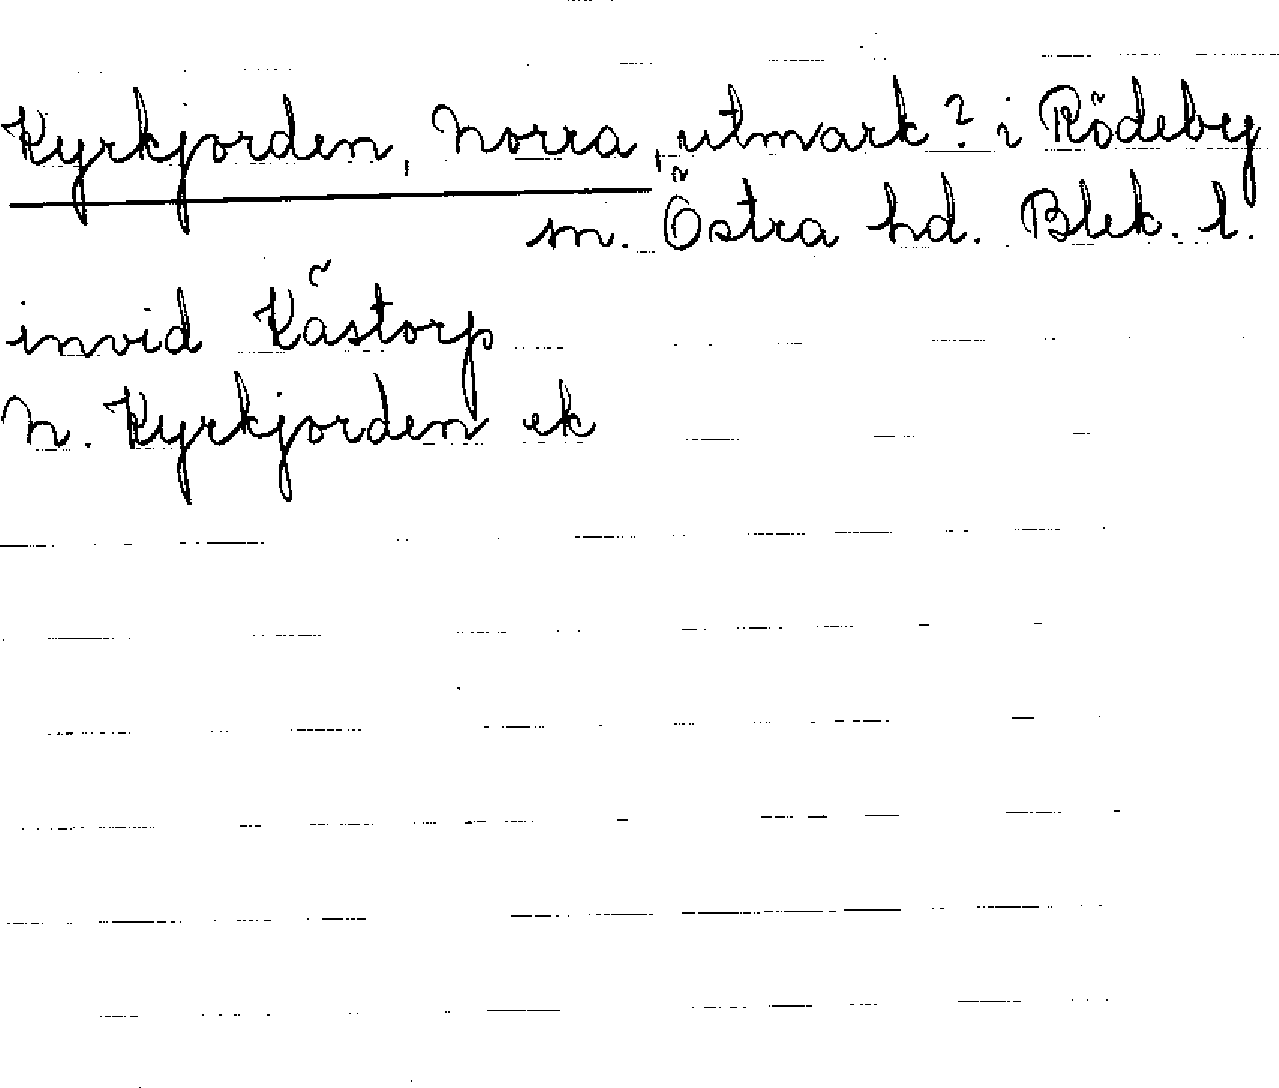 Kyrkjorden, Norra, utmark? i Rödeby
sn. Östra hd. Blek. l.
invid Kästorp
N. Kyrkjorden ek